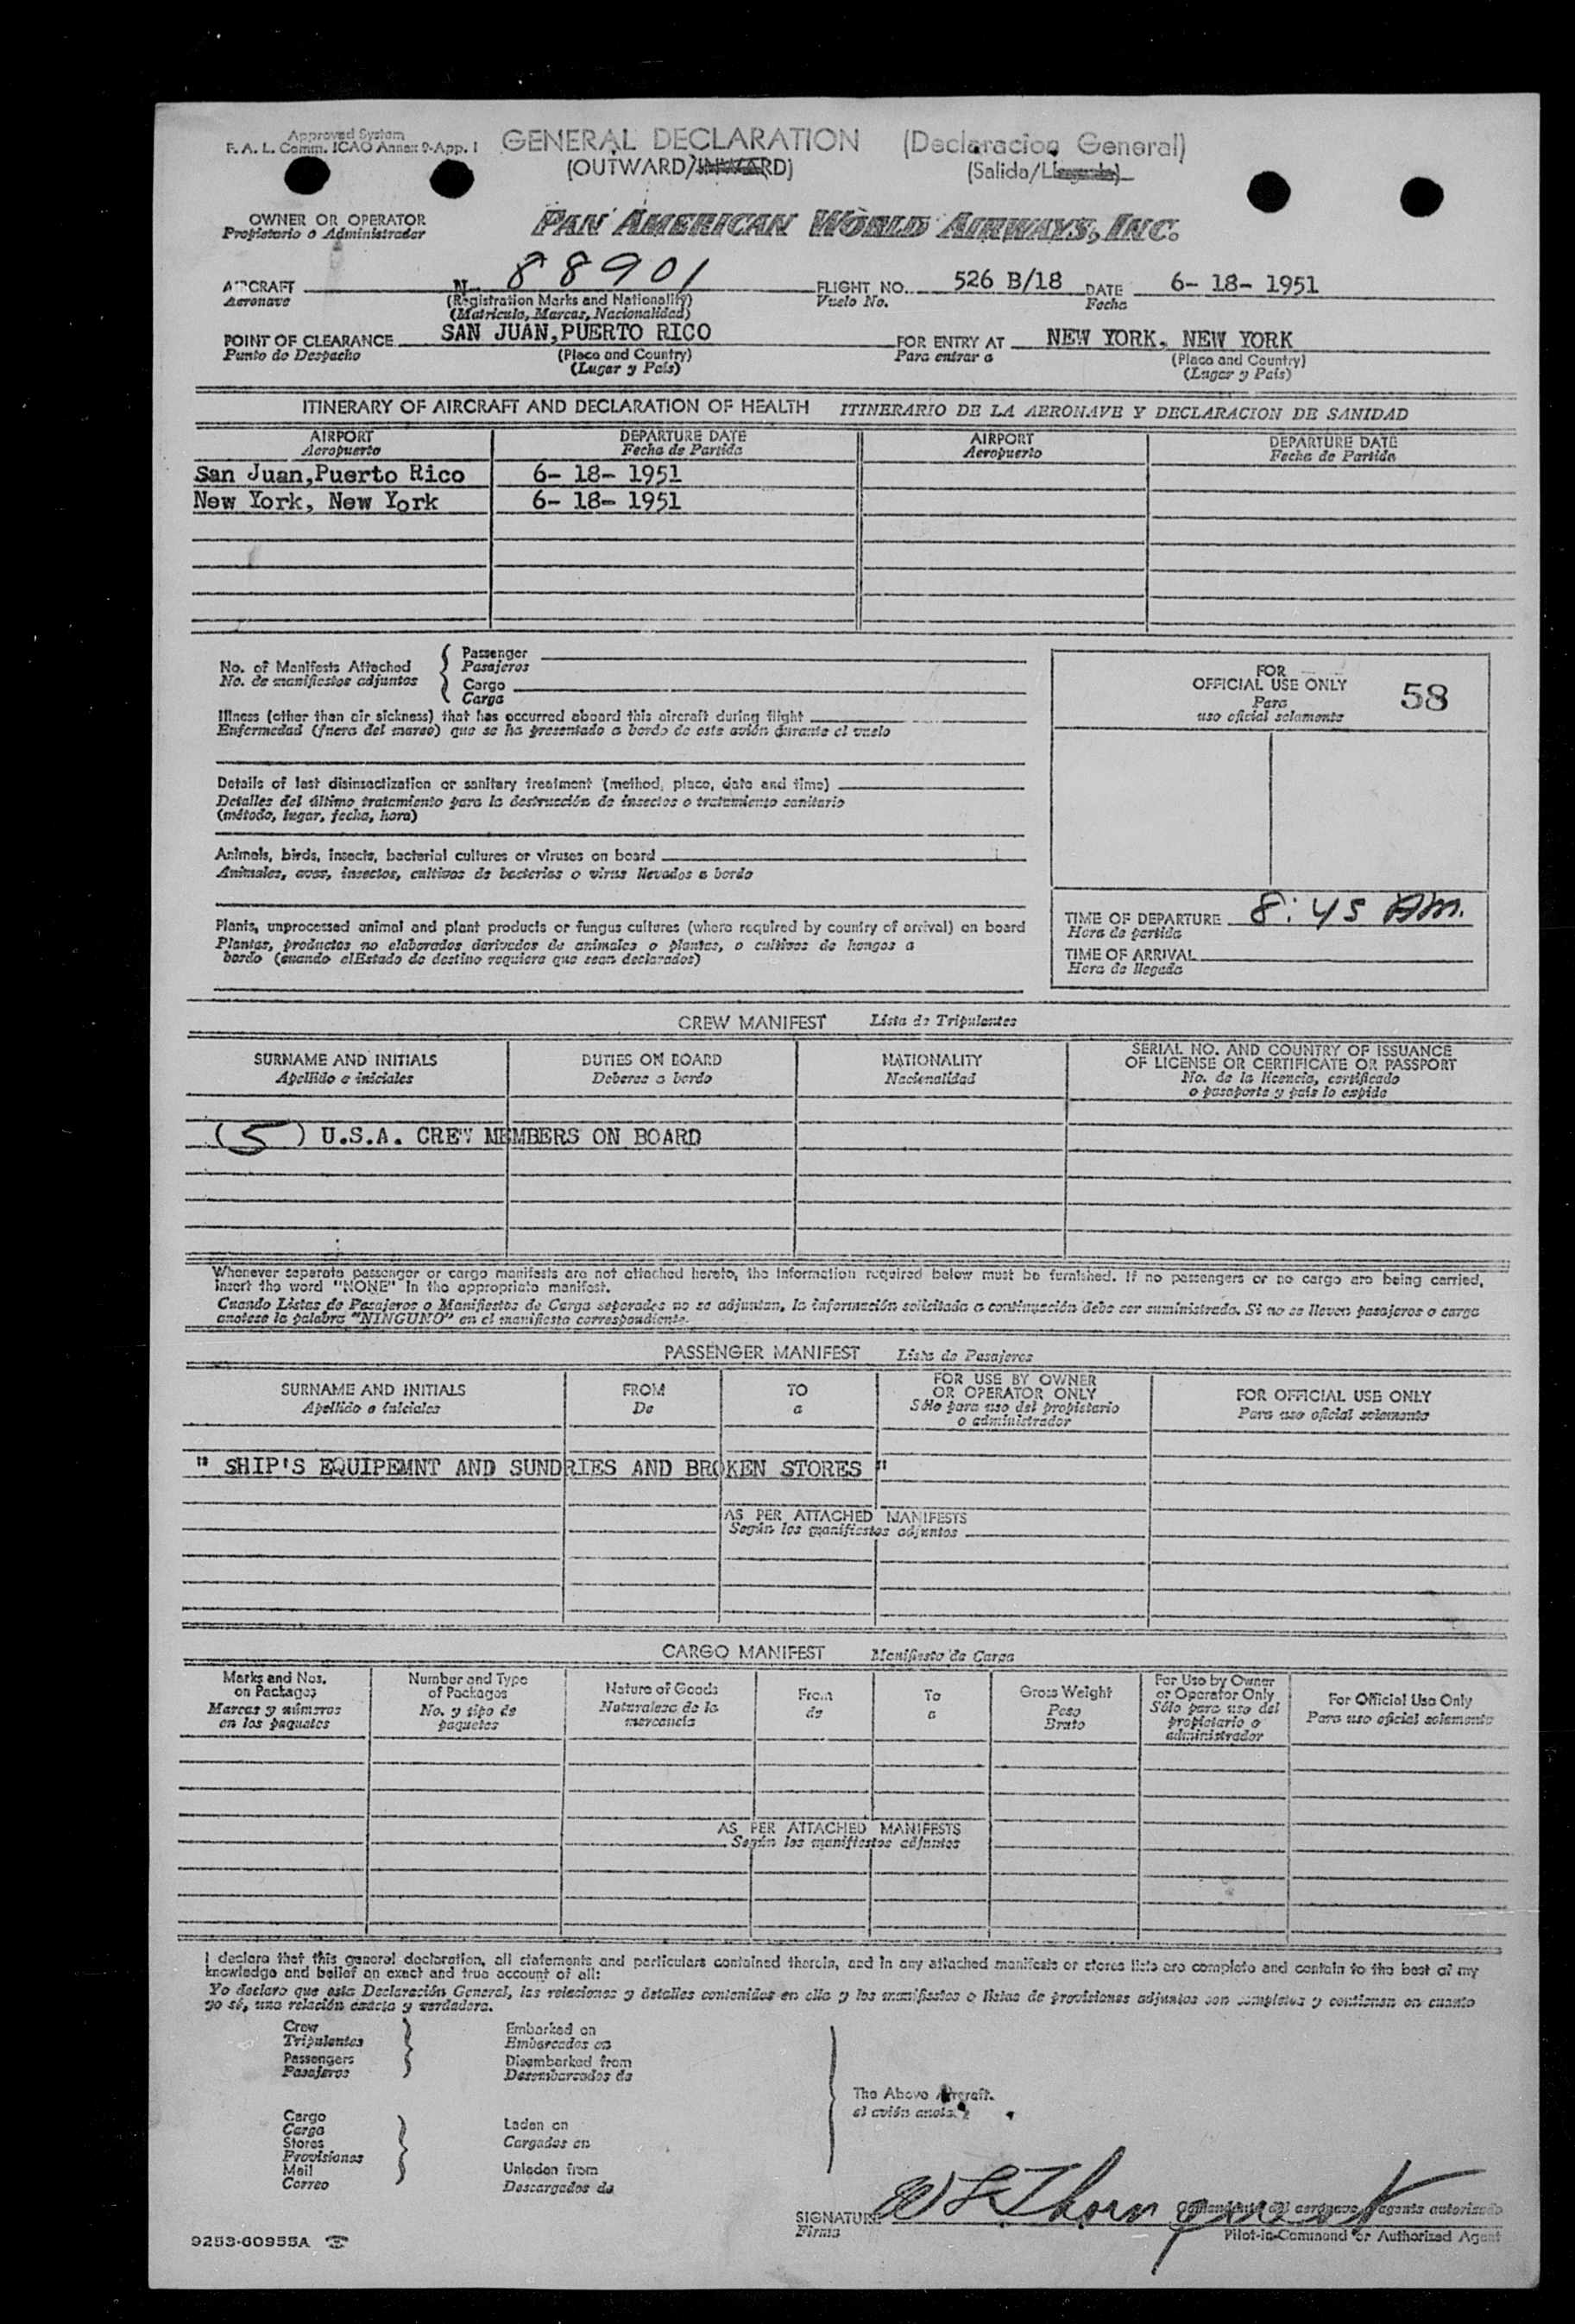 Approved System
F. A. L. Comm. ICAO Annex 9-App. I
GENERAL DECLARATION (Declaracion General)
(OUTWARD/INWARD) (Salida/Llegada)
OWNER OR OPERATOR
Propietario o Administrador
PAN AMERICAN WORLD AIRWAYS, INC.
AIRCRAFT N- 88901 FLIGHT NO. 526 B/18 DATE 6- 18- 1951
Aeronave (Registration Marks and Nationality) Vuelo No. Fecha
(Matricula, Marcas, Nacionalidad)
POINT OF CLEARANCE SAN JUAN, PUERTO RICO FOR ENTRY AT NEW YORK, NEW YORK
Punto de Despacho (Place and Country) Para entrar a (Place and Country)
(Lugar y País) (Lugar y País)
ITINERARY OF AIRCRAFT AND DECLARATION OF HEALTH ITINERARIO DE LA AERONAVE Y DECLARACION DE SANIDAD
AIRPORT DEPARTURE DATE AIRPORT DEPARTURE DATE
Aeropuerto Fecha de Partida Aeropuerto Fecha de Partida
San Juan,Puerto Rico 6- 18- 1951
New York, New York 6- 18- 1951
No. of Manifests Attached
No. de manifiestos adjuntos
Passenger
Pasajeros
Cargo
Carga
FOR
OFFICIAL USE ONLY
Para
uso oficial solamente
58
Illness (other than air sickness) that has occurred aboard this aircraft during flight
Enfermedad (fuera del mareo) que se ha presentado a bordo de este avión durante el vuelo
Details of last disinsectization or sanitary treatment (method, place, date and time)
Detalles del último tratamiento para la destrucción de insectos o tratamiento sanitario
(método, lugar, fecha, hora)
Animals, birds, insects, bacterial cultures or viruses on board
Animales, aves, insectos, cultivos de bacterias o virus llevados a bordo
Plants, unprocessed animal and plant products or fungus cultures (where required by country of arrival) on board
Plantas, productos no elaborados derivados de animales o plantas, o cultivos de hongos a
bordo (cuando elEstado de destino requiera que sean declarados)
TIME OF DEPARTURE 8:45 AM.
Hora de partida
TIME OF ARRIVAL
Hora de llegada
CREW MANIFEST Lista de Tripulantes
SURNAME AND INITIALS DUTIES ON BOARD NATIONALITY SERIAL NO. AND COUNTRY OF ISSUANCE
OF LICENSE OR CERTIFICATE OR PASSPORT
Apellido e iniciales Deberes a bordo Nacionalidad No. de la licencia, certificado
o pasaporte y país lo expide
(5) U.S.A. CREW MEMBERS ON BOARD
Whenever separate passenger or cargo manifests are not attached hereto, the information required below must be furnished. If no passengers or no cargo are being carried,
insert the word "NONE" in the appropriate manifest.
Cuando Listas de Pasajeros o Manifiestos de Carga separados no se adjuntan, la información solicitada a continuación debe ser suministrada. Si no se llevan pasajeros o carga
anotese la palabra "NINGUNO" en el manifiesto correspondiente.
PASSENGER MANIFEST Lista de Pasajeros
SURNAME AND INITIALS FROM TO FOR USE BY OWNER
OR OPERATOR ONLY FOR OFFICIAL USE ONLY
Apellido e iniciales De a Sólo para uso del propietario
o administrador Para uso oficial solamente
" SHIP'S EQUIPEMNT AND SUNDRIES AND BROKEN STORES "
AS PER ATTACHED MANIFESTS
Según los manifiestos adjuntos
CARGO MANIFEST Manifiesto de Carga
Marks and Nos.
on Packages
Marcas y números
en los paquetes
Number and Type
of Packages
No. y tipo de
paquetes
Nature of Goods
Naturaleza de la
mercancía
From
de
To
a
Gross Weight
Peso
Bruto
For Use by Owner
or Operator Only
Sólo para uso del
propietario o
administrador
For Official Use Only
Para uso oficial solamente
AS PER ATTACHED MANIFESTS
Según los manifiestos adjuntos
I declare that this general declaration, all statements and particulars contained therein, and in any attached manifests or stores lists are complete and contain to the best of my
knowledge and belief an exact and true account of all:
Yo declaro que esta Declaración General, las relaciones y detalles contenidos en ella y los manifiestos o listas de provisiones adjuntos son completos y contienen en cuanto
yo sé, una relación exacta y verdadera.
Crew
Tripulantes
Passengers
Pasajeros
Embarked on
Embarcados en
Disembarked from
Desembarcados de
The Above Aircraft.
el avión
Cargo
Carga
Stores
Provisiones
Mail
Correo
Laden on
Cargados en
Unladen from
Descargados de
SIGNATURE
Firma
agente autorizado
Pilot-in-Command or Authorized Agent
9253-60955A